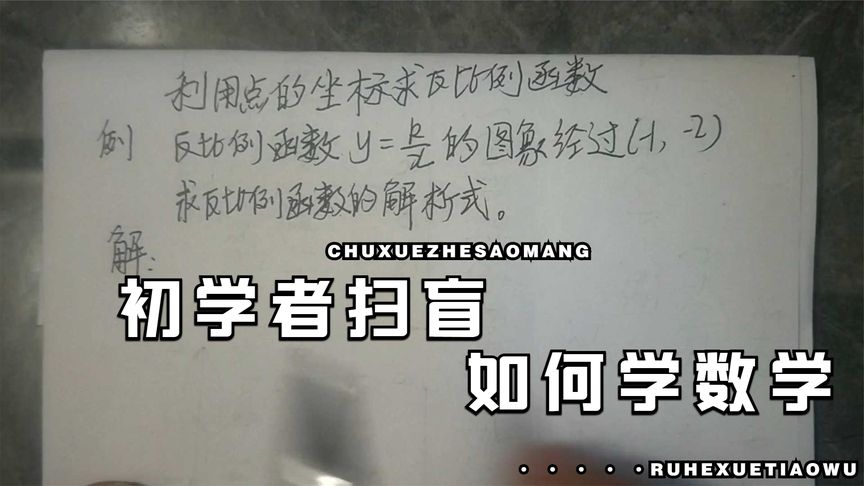 利用点的坐标求反比例函数
例 反比例函数 y=k/x 的图象经过(-1, -2)
求反比例函数的解析式。
解:
CHUXUEZHESAOMANG
初学者扫盲
如何学数学
·····RUHEXUETIAOWU